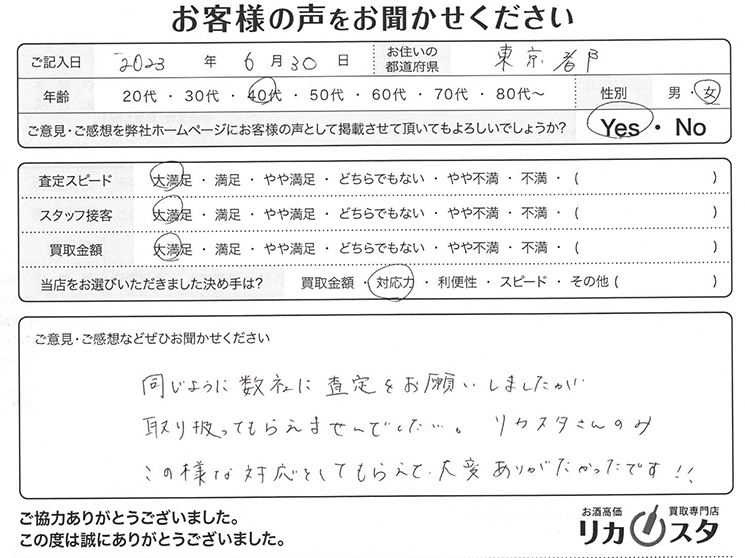 お客様の声をお聞かせください
ご記入日 2023 年 6 月 30 日 お住いの都道府県 東京都
年齢 20代・30代・40代・50代・60代・70代・80代〜 性別 男・女
ご意見・ご感想を弊社ホームページにお客様の声として掲載させて頂いてもよろしいでしょうか? Yes・No
査定スピード 大満足・満足・やや満足・どちらでもない・やや不満・不満・( )
スタッフ接客 大満足・満足・やや満足・どちらでもない・やや不満・不満・( )
買取金額 大満足・満足・やや満足・どちらでもない・やや不満・不満・( )
当店をお選びいただきました決め手は? 買取金額・対応力・利便性・スピード・その他( )
ご意見・ご感想などぜひお聞かせください
同じように数社に査定をお願いしましたが
取り扱ってもらえませんでした…。リカスタさんのみ
この様な対応をしてもらえて、大変ありがたかったです!!
ご協力ありがとうございました。
この度は誠にありがとうございました。
お酒高価 買取専門店
リカスタ